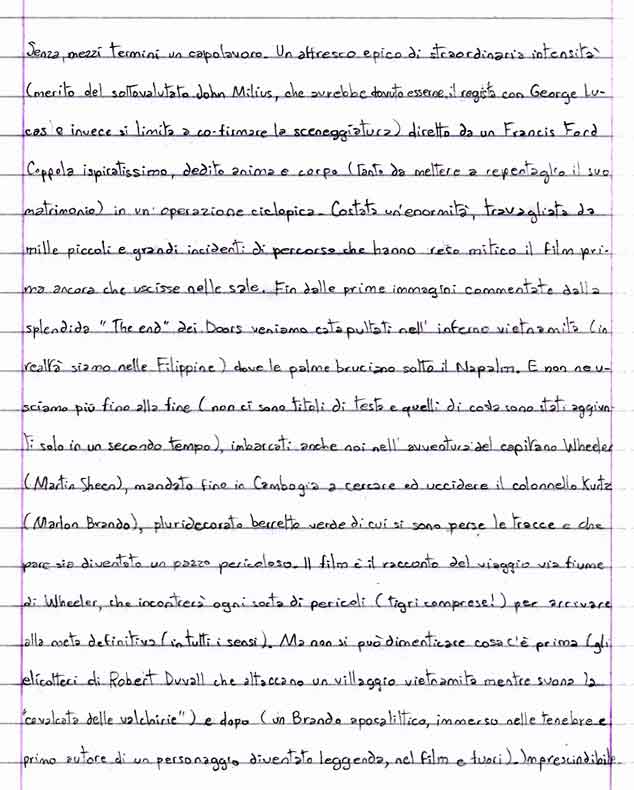 Senza mezzi termini un capolavoro. Un affresco epico di straordinaria intensità
(merito del sottovalutato John Milius, che avrebbe dovuto esserne il regista con George Lu-
cas e invece si limita a co-firmare la sceneggiatura) diretto da un Francis Ford
Coppola ispiratissimo, dedito anima e corpo (tanto da mettere a repentaglio il suo
matrimonio) in un'operazione ciclopica. Costata un'enormità, travagliata da
mille piccoli e grandi incidenti di percorso che hanno reso mitico il film pri-
ma ancora che uscisse nelle sale. Fin dalle prime immagini commentate dalla
splendida "The end" dei Doors veniamo catapultati nell'inferno vietnamita (in
realtà siamo nelle Filippine) dove le palme bruciano sotto il Napalm. E non ne u-
sciamo più fino alla fine (non ci sono titoli di testa e quelli di coda sono stati aggiun-
ti solo in un secondo tempo), imbarcati anche noi nell'avventura del capitano Wheeler
(Martin Sheen), mandato fino in Cambogia a cercare ed uccidere il colonnello Kurtz
(Marlon Brando), pluridecorato berretto verde di cui si sono perse le tracce e che
pare sia diventato un pazzo pericoloso. Il film è il racconto del viaggio via fiume
di Wheeler, che incontrerà ogni sorta di pericoli (tigri comprese!) per arrivare
alla meta definitiva (in tutti i sensi). Ma non si può dimenticare cosa c'è prima (gli
elicotteri di Robert Duvall che attaccano un villaggio vietnamita mentre suona la
"cavalcata delle valchirie") e dopo (un Brando apocalittico, immerso nelle tenebre e
primo autore di un personaggio diventato leggenda, nel film e fuori). Imprescindibile